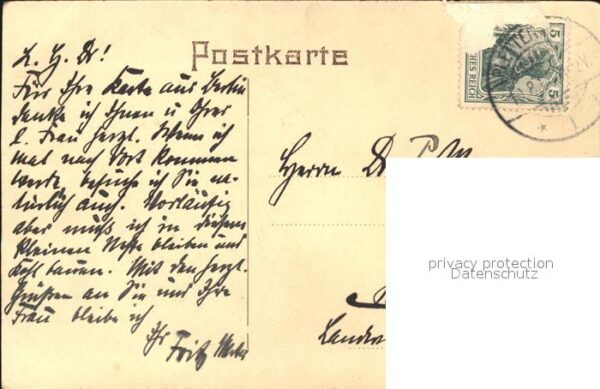 L. H. Dr!
Postkarte
Für Ihre Karte aus Berlin
danke ich Ihnen u Ihrer
l. Frau herzl. Wenn ich
mal nach dort kommen
werde, besuche ich Sie na-
türlich auch. Vorläufig
aber muß ich in diesem
kleinen Neste bleiben und
Kohl bauen. Mit den herzl.
Grüßen an Sie und Ihre
Frau bleibe ich
Ihr Fritz
Herrn Dr.
5
5
HES REICH
PLETTE
privacy protection
Datenschutz